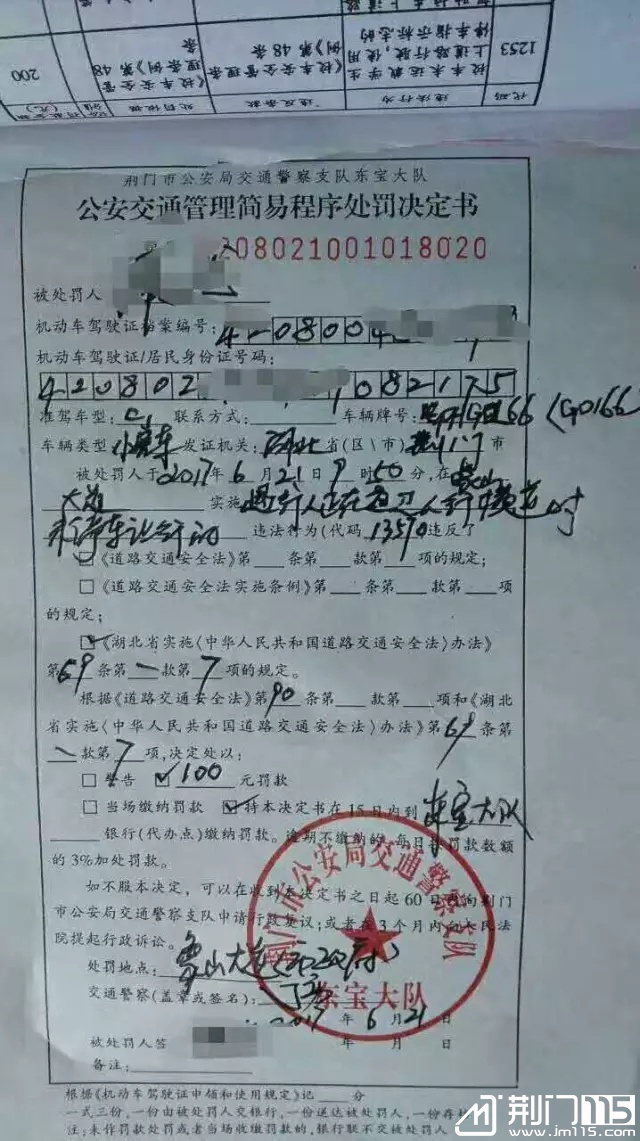 1253
校车未运载学生上道路行驶,使用停车指示标志的
《校车安全管理条例》第48条
《校车安全管理条例》第48条
200
代码
违法行为
违反条款
处罚依据
荆门市公安局交通警察支队东宝大队
公安交通管理简易程序处罚决定书
208021001018020
被处罚人
机动车驾驶证档案编号:4208004
机动车驾驶证/居民身份证号码:
420802 1082175
准驾车型:C1 联系方式: 车辆牌号: 66(G0166)
车辆类型 小客车 发证机关:湖北省(区\市)荆门市
被处罚人于2017年6月21日9时50分,在象山
大道 实施 遇行人正在通过人行横道时
未停车让行的 违法行为(代码13570违反了
□《道路交通安全法》第 条第 款第 项的规定;
□《道路交通安全法实施条例》第 条第 款第 项
的规定;
☑《湖北省实施〈中华人民共和国道路交通安全法〉办法》
第69条第一款第7项的规定。
根据《道路交通安全法》第90条第 款第 项和《湖北
省实施〈中华人民共和国道路交通安全法〉办法》第69条第
一款第7项,决定处以:
□警告 ☑100元罚款
□当场缴纳罚款 ☑持本决定书在15日内到 东宝大队
银行(代办点)缴纳罚款。逾期不缴纳的,每日按罚款数额
的3%加处罚款。
如不服本决定,可以在收到本决定书之日起60日内向荆门
市公安局交通警察支队申请行政复议;或者在3个月内向人民法
院提起行政诉讼。
处罚地点:象山大道(市政府)
交通警察(盖章或签名):
荆门市公安局交通警察支队
东宝大队
2017年6月21日
被处罚人签
备注:
根据《机动车驾驶证申领和使用规定》记 分
一式三份,一份由被处罚人交银行,一份送达被处罚人,一份存
注:未作罚款处罚或者当场收缴罚款的,银行联不交被处罚人
荆门115
www.jm115.com